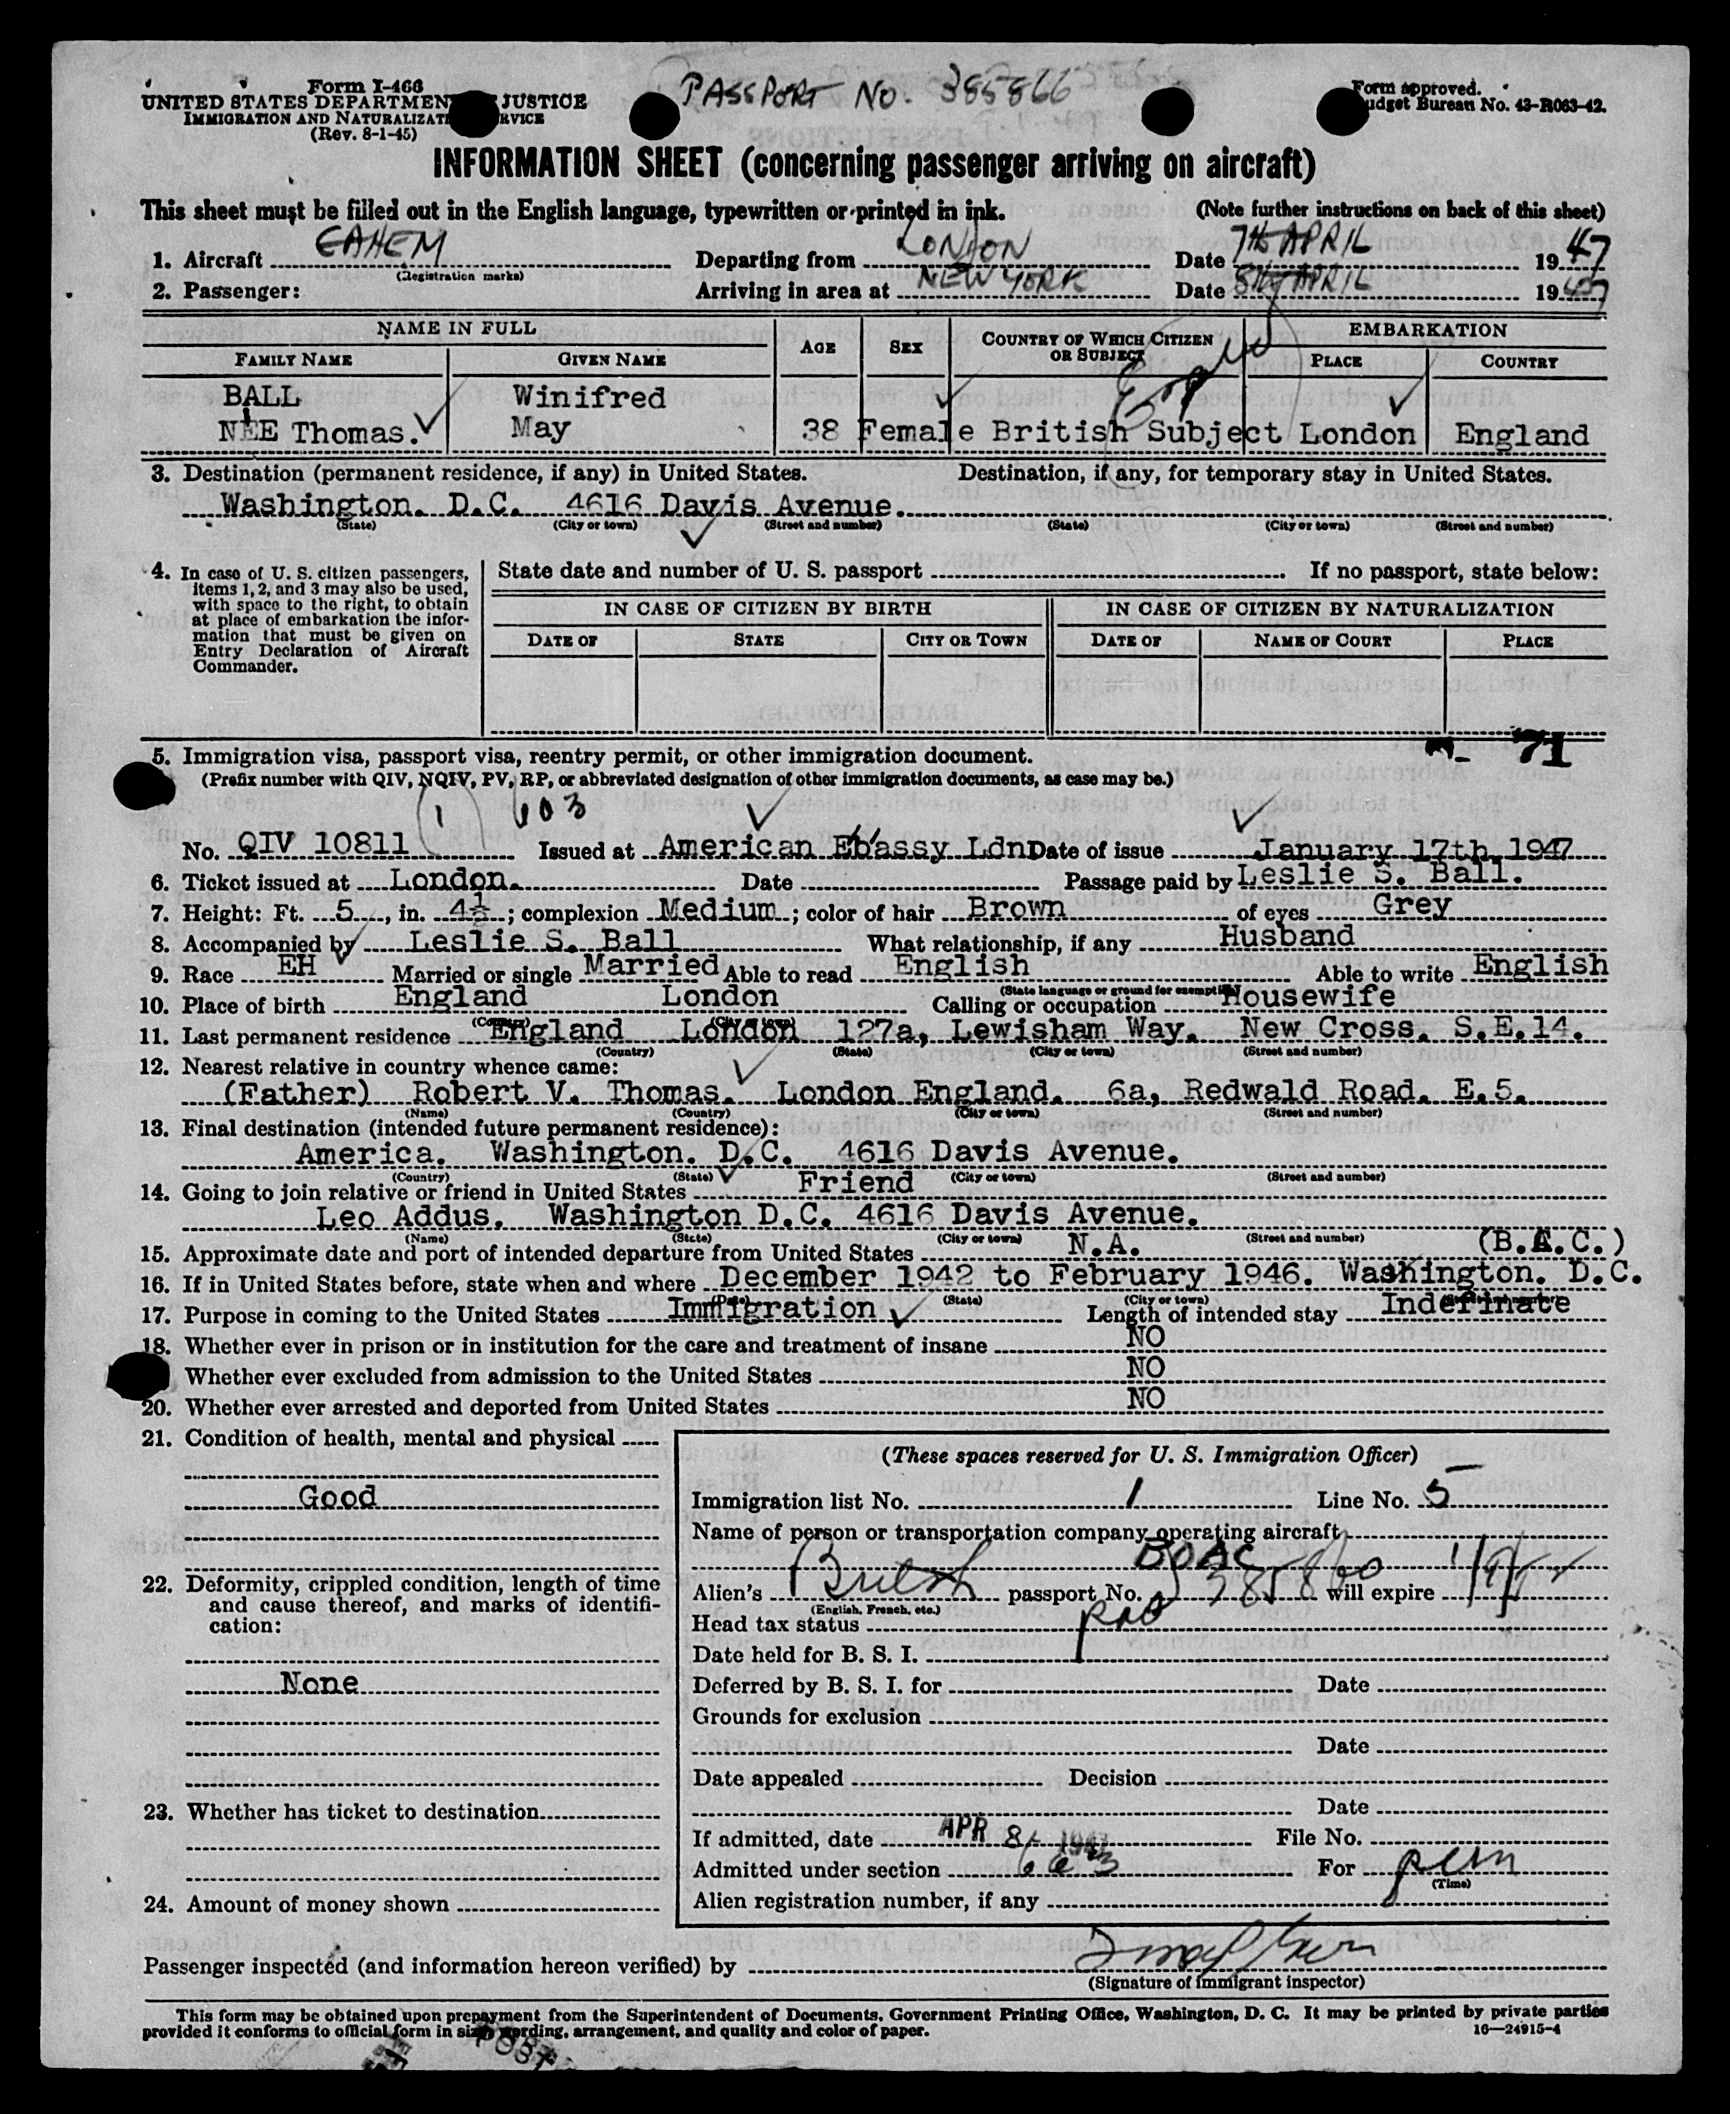 Form I-466
UNITED STATES DEPARTMENT JUSTICE
IMMIGRATION AND NATURALIZATION SERVICE
(Rev. 8-1-45)
PASSPORT NO. 385866
Form approved.
Budget Bureau No. 43-R063-42.
INFORMATION SHEET (concerning passenger arriving on aircraft)
This sheet must be filled out in the English language, typewritten or printed in ink. (Note further instructions on back of this sheet)
1. Aircraft GAHEM Departing from LONDON Date 7th APRIL 1947
(Registration marks)
2. Passenger: Arriving in area at NEW YORK Date 8th APRIL 1947
NAME IN FULL AGE SEX COUNTRY OF WHICH CITIZEN OR SUBJECT EMBARKATION
FAMILY NAME GIVEN NAME PLACE COUNTRY
BALL Winifred
NEE Thomas. May 38 Female British Subject London England
3. Destination (permanent residence, if any) in United States. Destination, if any, for temporary stay in United States.
Washington. D.C. 4616 Davis Avenue.
(State) (City or town) (Street and number) (State) (City or town) (Street and number)
4. In case of U. S. citizen passengers, items 1, 2, and 3 may also be used, with space to the right, to obtain at place of embarkation the information that must be given on Entry Declaration of Aircraft Commander.
State date and number of U. S. passport If no passport, state below:
IN CASE OF CITIZEN BY BIRTH IN CASE OF CITIZEN BY NATURALIZATION
DATE OF STATE CITY OR TOWN DATE OF NAME OF COURT PLACE
71
5. Immigration visa, passport visa, reentry permit, or other immigration document.
(Prefix number with QIV, NQIV, PV, RP, or abbreviated designation of other immigration documents, as case may be.)
(1) 603
No. QIV 10811 Issued at American Ebassy Ldn Date of issue January 17th, 1947
6. Ticket issued at London. Date Passage paid by Leslie S. Ball.
7. Height: Ft. 5, in. 4½; complexion Medium; color of hair Brown of eyes Grey
8. Accompanied by Leslie S. Ball What relationship, if any Husband
9. Race EH Married or single Married Able to read English Able to write English
(State language or ground for exemption)
10. Place of birth England London Calling or occupation Housewife
(Country) (City or town)
11. Last permanent residence England London 127a, Lewisham Way. New Cross. S.E.14.
(Country) (State) (City or town) (Street and number)
12. Nearest relative in country whence came:
(Father) Robert V. Thomas. London England. 6a, Redwald Road. E.5.
(Name) (Country) (City or town) (Street and number)
13. Final destination (intended future permanent residence):
America. Washington. D.C. 4616 Davis Avenue.
(Country) (State) (City or town) (Street and number)
14. Going to join relative or friend in United States Friend
Leo Addus. Washington D.C. 4616 Davis Avenue.
(Name) (State) (City or town) (Street and number)
15. Approximate date and port of intended departure from United States N.A. (B.A.C.)
16. If in United States before, state when and where December 1942 to February 1946. Washington. D.C.
(State) (City or town)
17. Purpose in coming to the United States Immigration Length of intended stay Indefinate
18. Whether ever in prison or in institution for the care and treatment of insane NO
Whether ever excluded from admission to the United States NO
20. Whether ever arrested and deported from United States NO
21. Condition of health, mental and physical
Good
22. Deformity, crippled condition, length of time and cause thereof, and marks of identification:
None
23. Whether has ticket to destination
24. Amount of money shown
(These spaces reserved for U. S. Immigration Officer)
Immigration list No. 1 Line No. 5
Name of person or transportation company operating aircraft
BOAC
Alien's British passport No. will expire
(English, French, etc.)
Head tax status
Date held for B. S. I.
Deferred by B. S. I. for Date
Grounds for exclusion
Date
Date appealed Decision
Date
If admitted, date APR 8 File No.
Admitted under section 6a3 For perm
(Time)
Alien registration number, if any
Passenger inspected (and information hereon verified) by
(Signature of immigrant inspector)
This form may be obtained upon prepayment from the Superintendent of Documents, Government Printing Office, Washington, D. C. It may be printed by private parties
provided it conforms to official form in size, wording, arrangement, and quality and color of paper.
16—24915-4